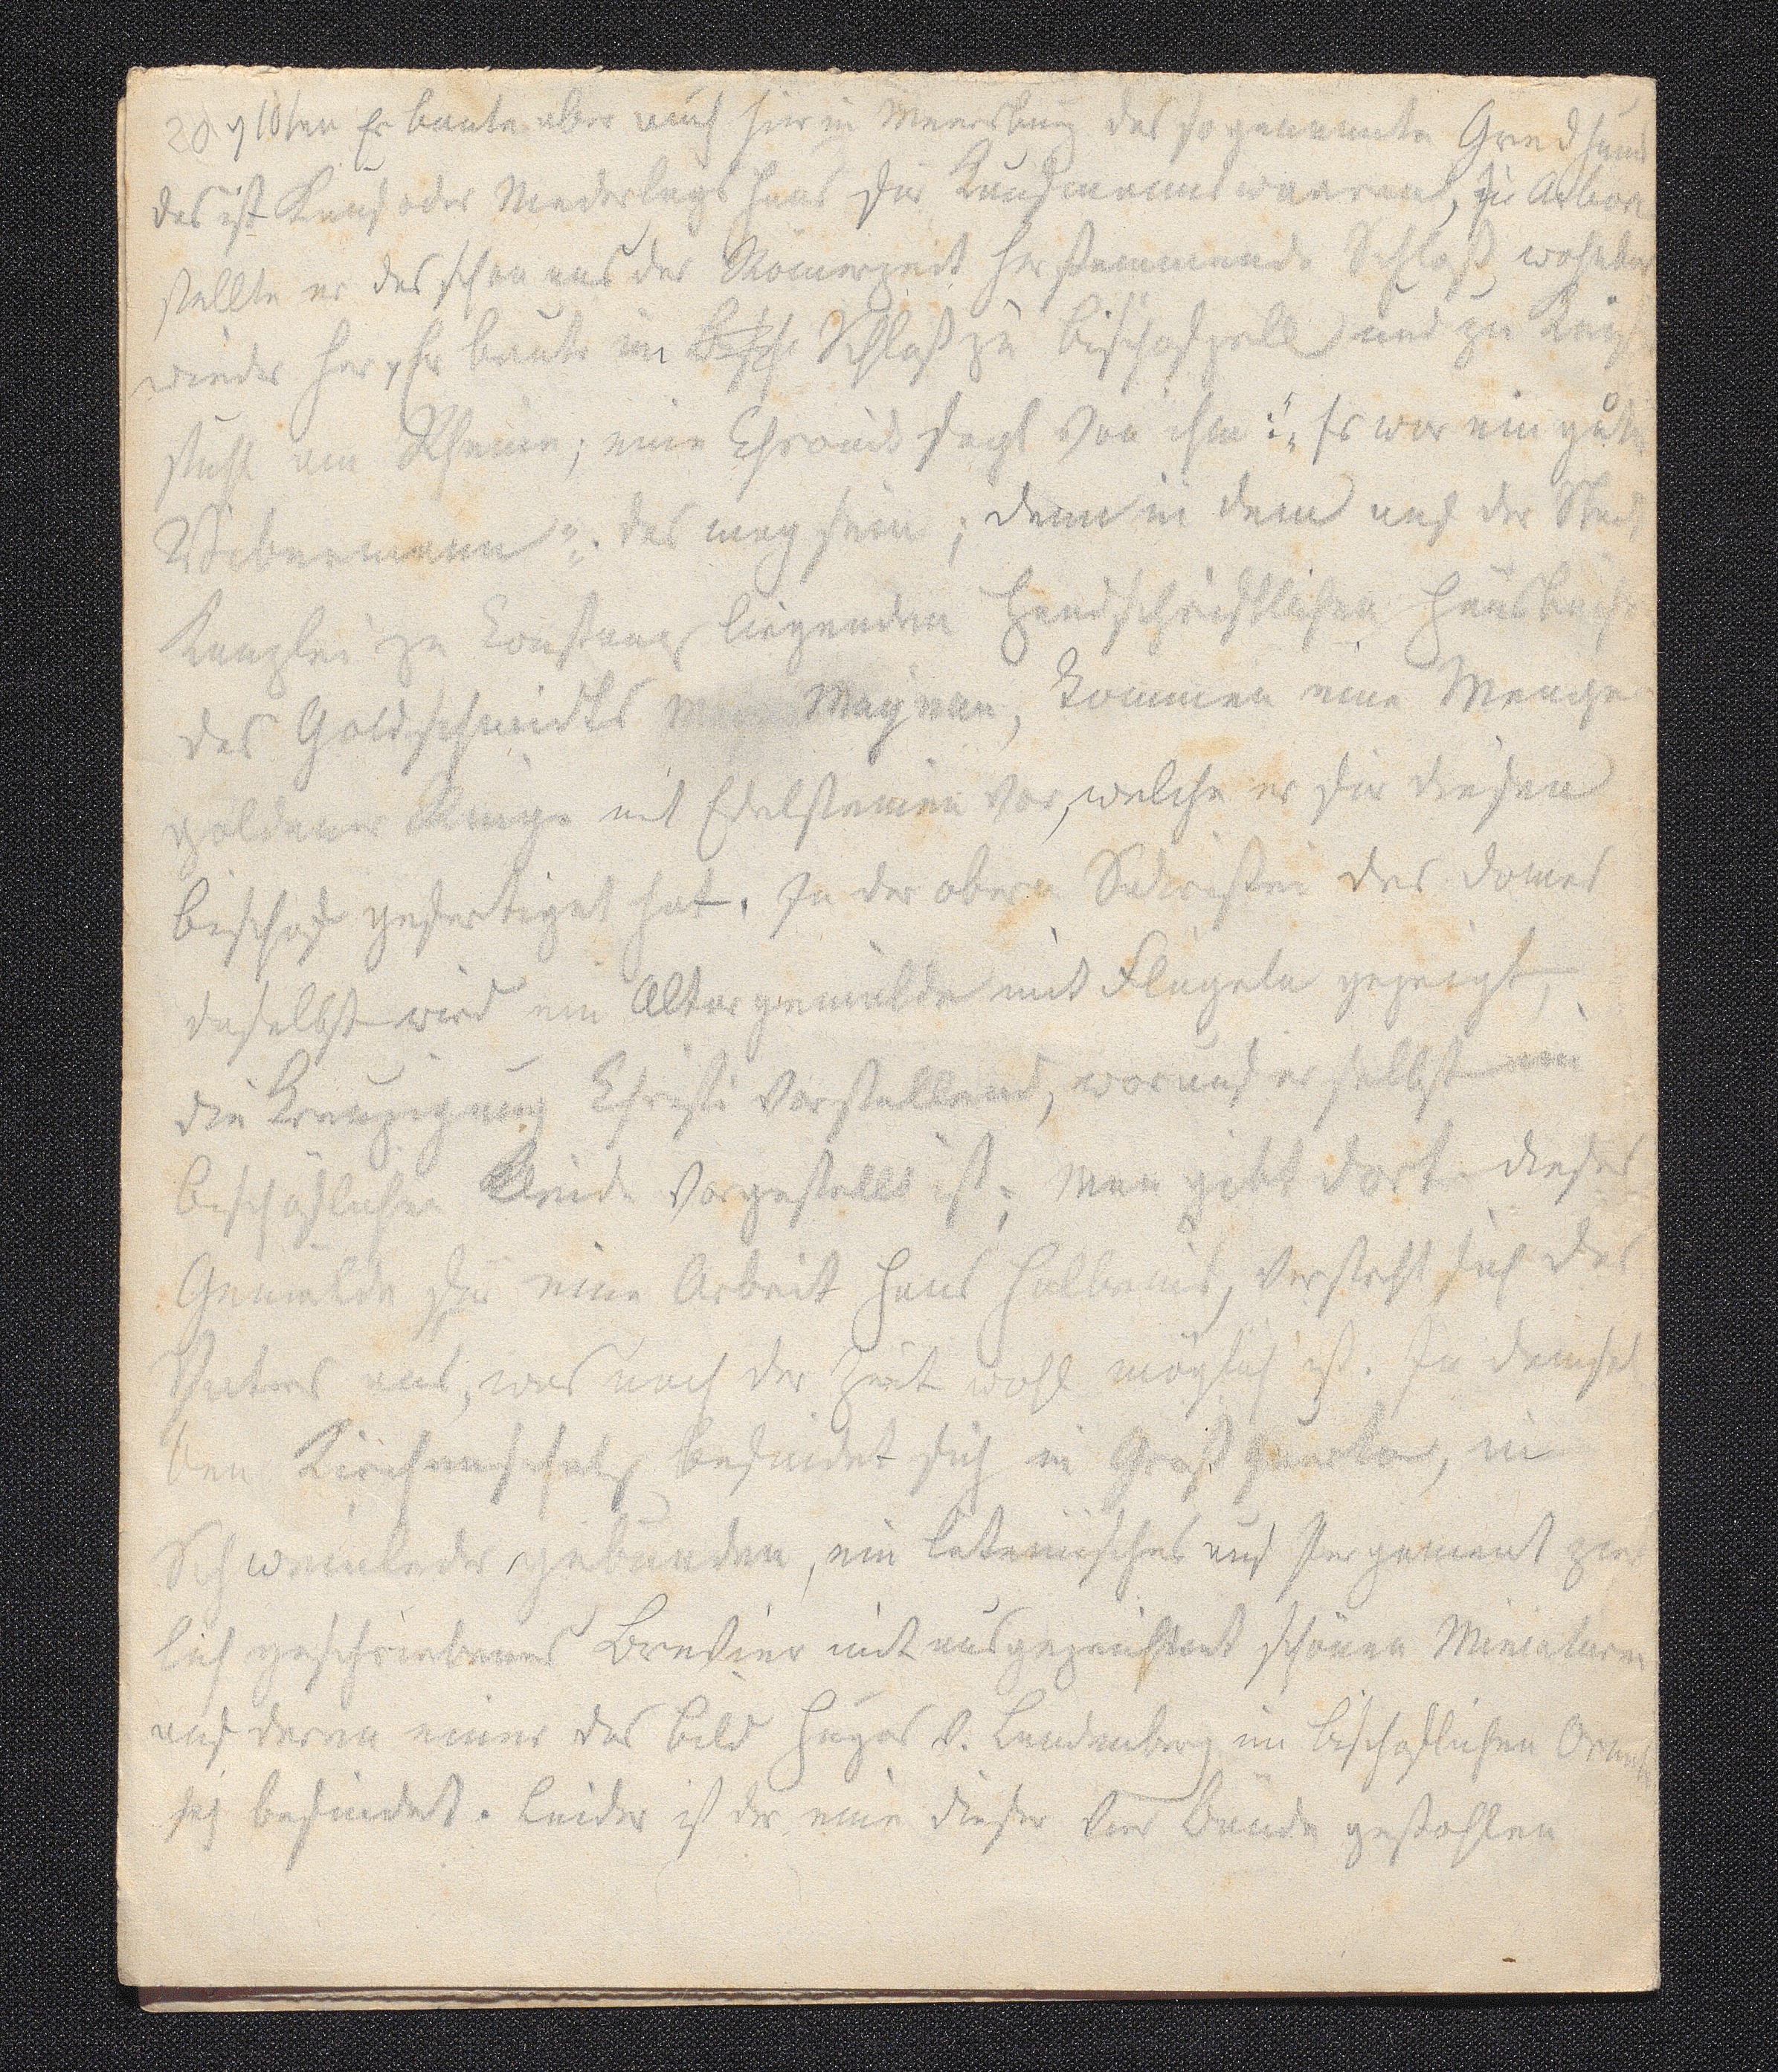 Er baute aber auch hier in Meersburg das sogenannte Gredhaus
das ist Kauf oder Niederlagshaus für Kaufmannswaaren, zu Arbon
stellte er das schon aus der Römerzeit herstammende Schloß
wieder her, Er baute im Schloß zu Bischofzell und zu Kaiser
stuhl am Rheine; eine Chronik sagt von ihm: „Er war ein guter
das mag sein; denn in dem auf der Stadt
Kanzlei zu Constanz liegenden handschriftlichen Hausbuche
des Goldschmidts kommen eine Menge
goldener Ringe mit Edelsteinen vor, welche er für diesen
Bischof gefertiget hat. In der obern Sakristei des Domes
daselbst wird ein Altargemälde mit Flügeln gezeigt,
die Kreuzigung Christi vorstellend, worauf er selbst im
bischöflichen Kleide vorgestellt ist; Man gibt dort dieses
Gemälde für eine Arbeit Hans Holbeins, versteht sich des
Vaters aus, was nach der Zeit wohl möglich ist. In demsel
ben Kirchenschatz befindet sich in Groß quarto, in
Schweinleder gebunden, ein lateinisches auf Pergament zier
lich geschriebenes Brevier mit ausgezeichnet schönen Miniaturen
auf deren einer das Bild Hugos v. Landenberg im bischoflichen Ornate
sich befindet. Leider ist der eine dieser vier Bände gestohlen